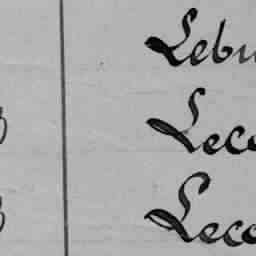 Lebu
Leco
Leco